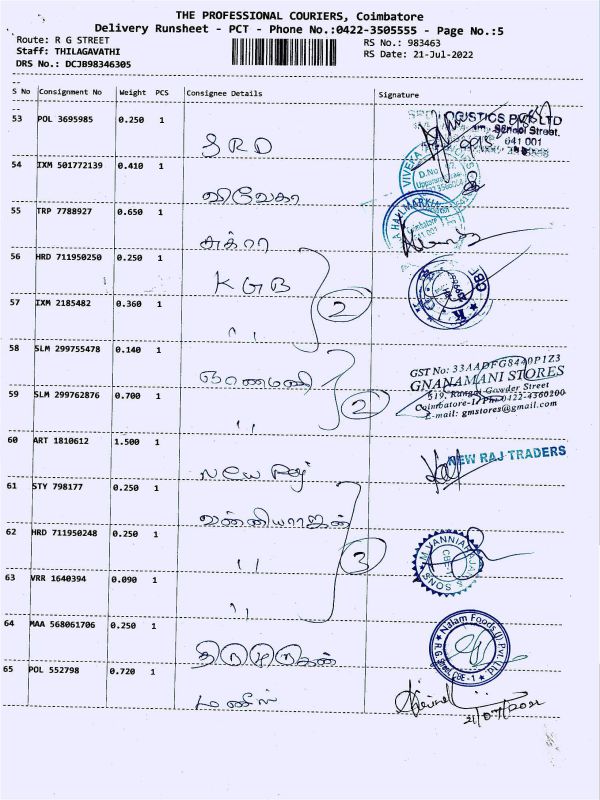 THE PROFESSIONAL COURIERS, Coimbatore
Delivery Runsheet - PCT - Phone No.:0422-3505555 - Page No.:5
Route: R G STREET
RS No.: 983463
Staff: THILAGAVATHI
RS Date: 21-Jul-2022
DRS No.: DCJB98346305
S No Consignment No Weight PCS Consignee Details Signature
53 POL 3695985 0.250 1 SRD
LOGISTICS PVT LTD
School Street.
641 001
54 IXM 501772139 0.410 1 விவேகா
VIVEKA
D.No
55 TRP 7788927 0.650 1
HALLMARKING
56 HRD 711950250 0.250 1 KGB
2
57 IXM 2185482 0.360 1 "
CBE
K
58 SLM 299755478 0.140 1 ஞானமணி
2
59 SLM 299762876 0.700 1 "
GST No: 33AADFG8440P1Z3
GNANAMANI STORES
519, Rangai Gowder Street
Coimbatore-1. Ph: 0422-4360200
E-mail: gmstores@gmail.com
60 ART 1810612 1.500 1 New Raj
NEW RAJ TRADERS
61 STY 798177 0.250 1 வன்னியராஜன்
3
62 HRD 711950248 0.250 1 "
VANNIA RAJA & SONS
CBE
63 VRR 1640394 0.090 1 "
64 MAA 568061706 0.250 1 திருமுருகன்
Nalam Foods (I) Pvt. Ltd
R G Street, CBE - 1
65 POL 552798 0.720 1
21/07/2022